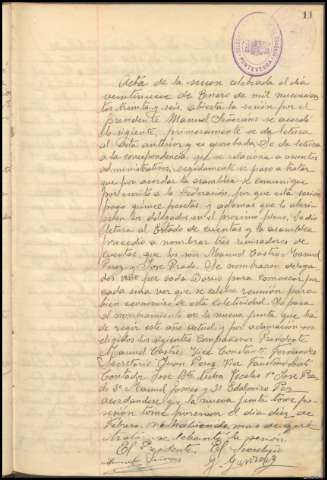 11
PONTEVEDRA
Acta de la sesion celebrada el día
veintinueve de Enero de mil novecien
tos treinta y seis, abierta la sesión por el
Presidente Manuel Señorans se acordó
lo siguiente, primeramente se da letura
al Acta anterior y es aprobada, Se da letura
a la correspondencia, que se relaciona a asuntos
administrativos, seguidamente se paso a tratar
que por acordar la asamblea
por escrito a la Federación, por que esta
pago quince pesetas y ademas que lo
los delegados en el proximo pleno, Se dio
letura al Estado de cuentas y la asamblea
procedio a nombrar tres revisadores de
cuentas, que los son Manuel Castro, Manuel
Perez y Jose Prado. Se nombraron delega
dos uno por cada Barrio para comunicar por
cada una vez que se celebre reunión para
bien economico de esta colectividad. Se pasa
al nombramiento de la nueva junta que ha
de regir este año actual y por aclamacion son
elegidos los siguientes Compañeros Presidente
Manuel Castro, Vice Constante Fernandez
Secretario Juan Perez, Vice
Contador Jose
3º Manuel Gomez y
acordandose que la nueva junta tome po
sesion el día diez de
Febrero, no habiendo mas de que
tratar, y se levanta la sesión.
El Presidente El Secretario